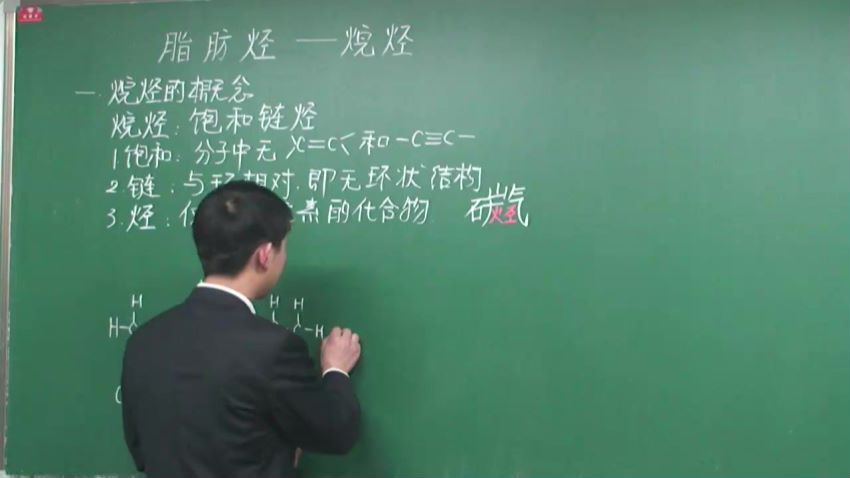 脂肪烃——烷烃
一.烷烃的概念
烷烃：饱和链烃
1.饱和：分子中无 C=C 和 -C≡C-
2.链：与环相对.即无环状结构
3.烃： 素的化合物 碳 烃 氢
H H H
H-C C-H